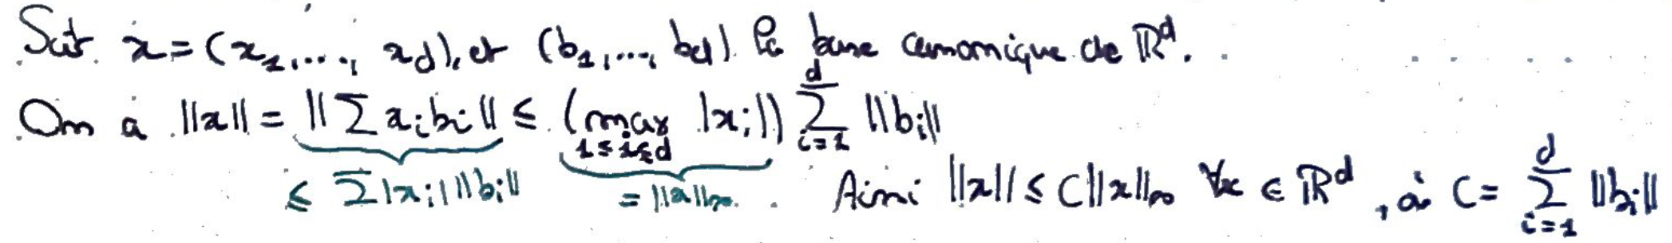 Soit x = (x₁, ..., x_d), et (b₁, ..., b_d) la base canonique de ℝᵈ.
On a ||x|| = ||∑ x_i b_i|| ≤ (max_{1≤i≤d} |x_i|) ∑_{i=1}^{d} ||b_i||
≤ ∑ |x_i| ||b_i|| = ||x||_∞. Ainsi ||x|| ≤ C||x||_∞ ∀x ∈ ℝᵈ, où C = ∑_{i=1}^{d} ||b_i||